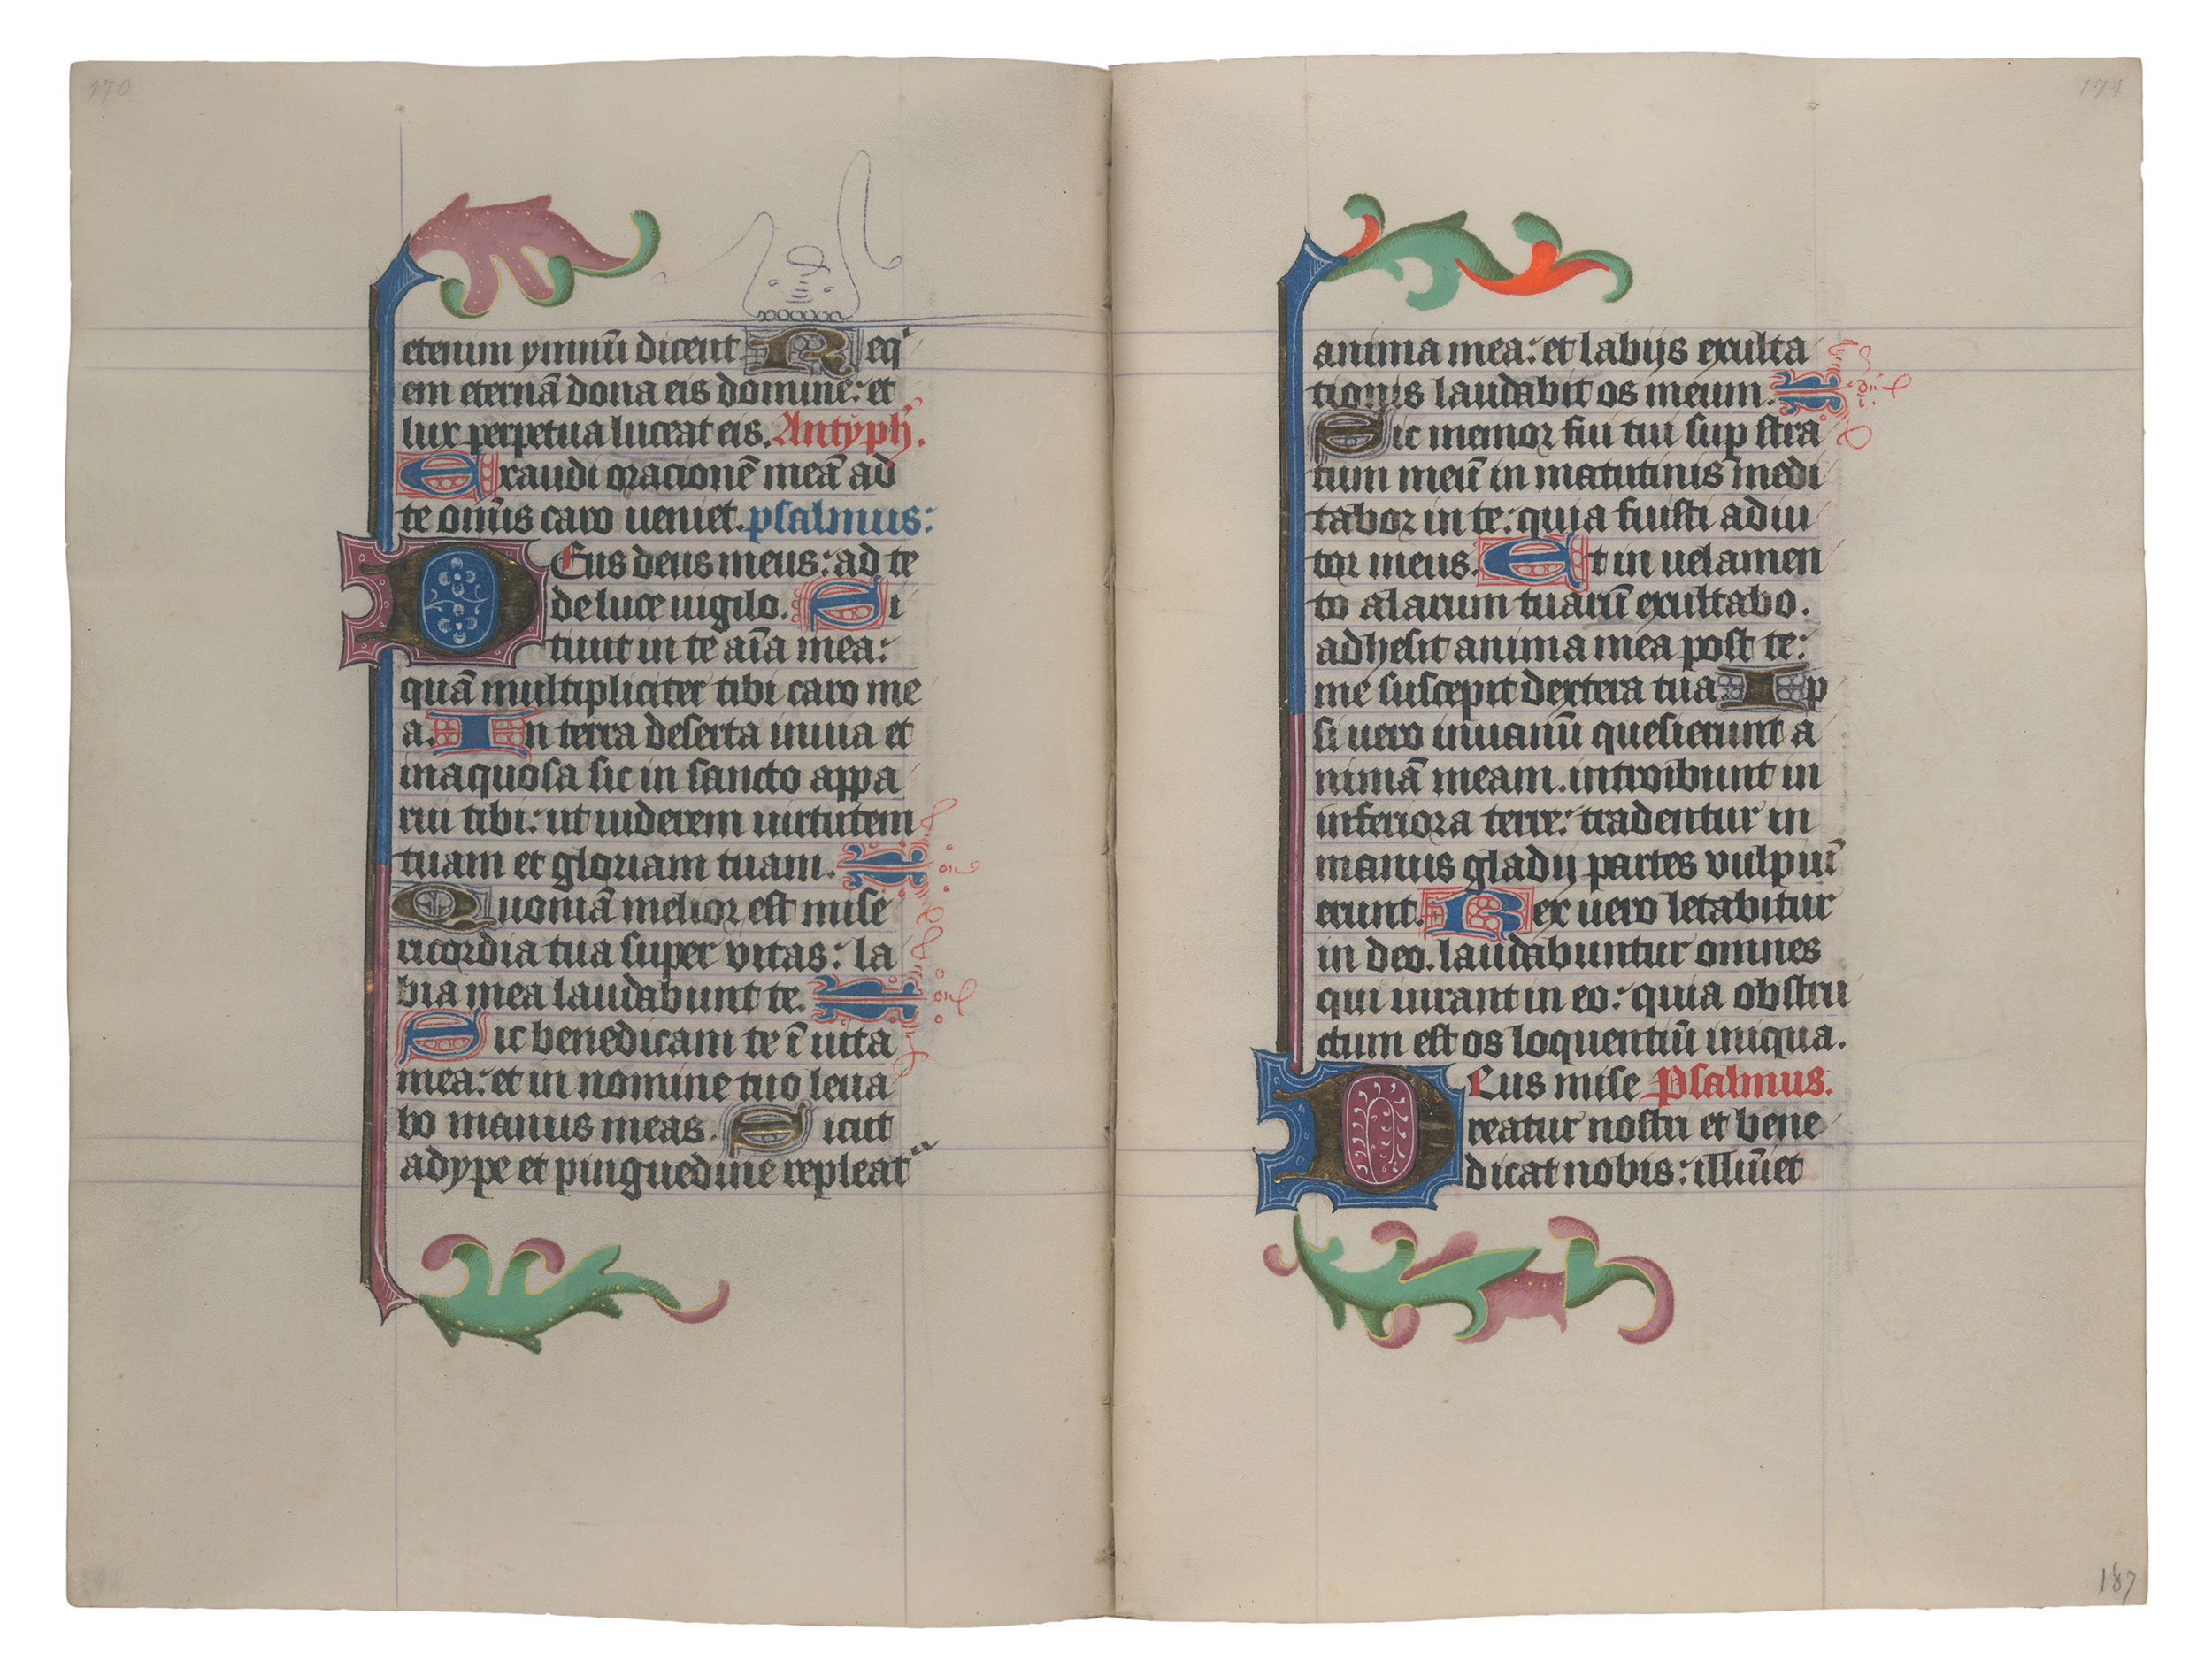 170
etenim ymnū dicent. Req
em eternā dona eis domine: et
lux perpetua luceat eis. Antyph.
Exaudi oracionē meā ad
te om̄is caro ueniet. psalmus:
DEus deus meus: ad te
de luce uigilo. Si
tiuit in te aīa mea:
quā multipliciter tibi caro me
a. In terra deserta inuia et
inaquosa sic in sancto appa
rui tibi: ut uiderem uirtutem
tuam et gloriam tuam.
Quoniā melior est mise
ricordia tua super vitas: la
bia mea laudabunt te.
Sic benedicam te ī uita
mea: et in nomine tuo leua
bo manus meas. Sicut
adype et pinguedine repleat
171
anima mea: et labijs exulta
tionis laudabit os meum.
Sic memor fui tui sup stra
tum meū in matutinis medi
tabor in te: quia fuisti adiu
tor meus. Et in uelamen
to alarum tuarū exultabo.
adhesit anima mea post te:
me suscepit dextera tua. Ip
si uero inuanū quesierunt a
nimā meam. introibunt in
inferiora terre: tradentur in
manus gladij partes vulpiū
erunt. Rex uero letabitur
in deo. laudabuntur omnes
qui iurant in eo: quia obstru
ctum est os loquentiū iniqua.
DEus mise Psalmus.
reatur nostri et bene
dicat nobis: illūiet
187